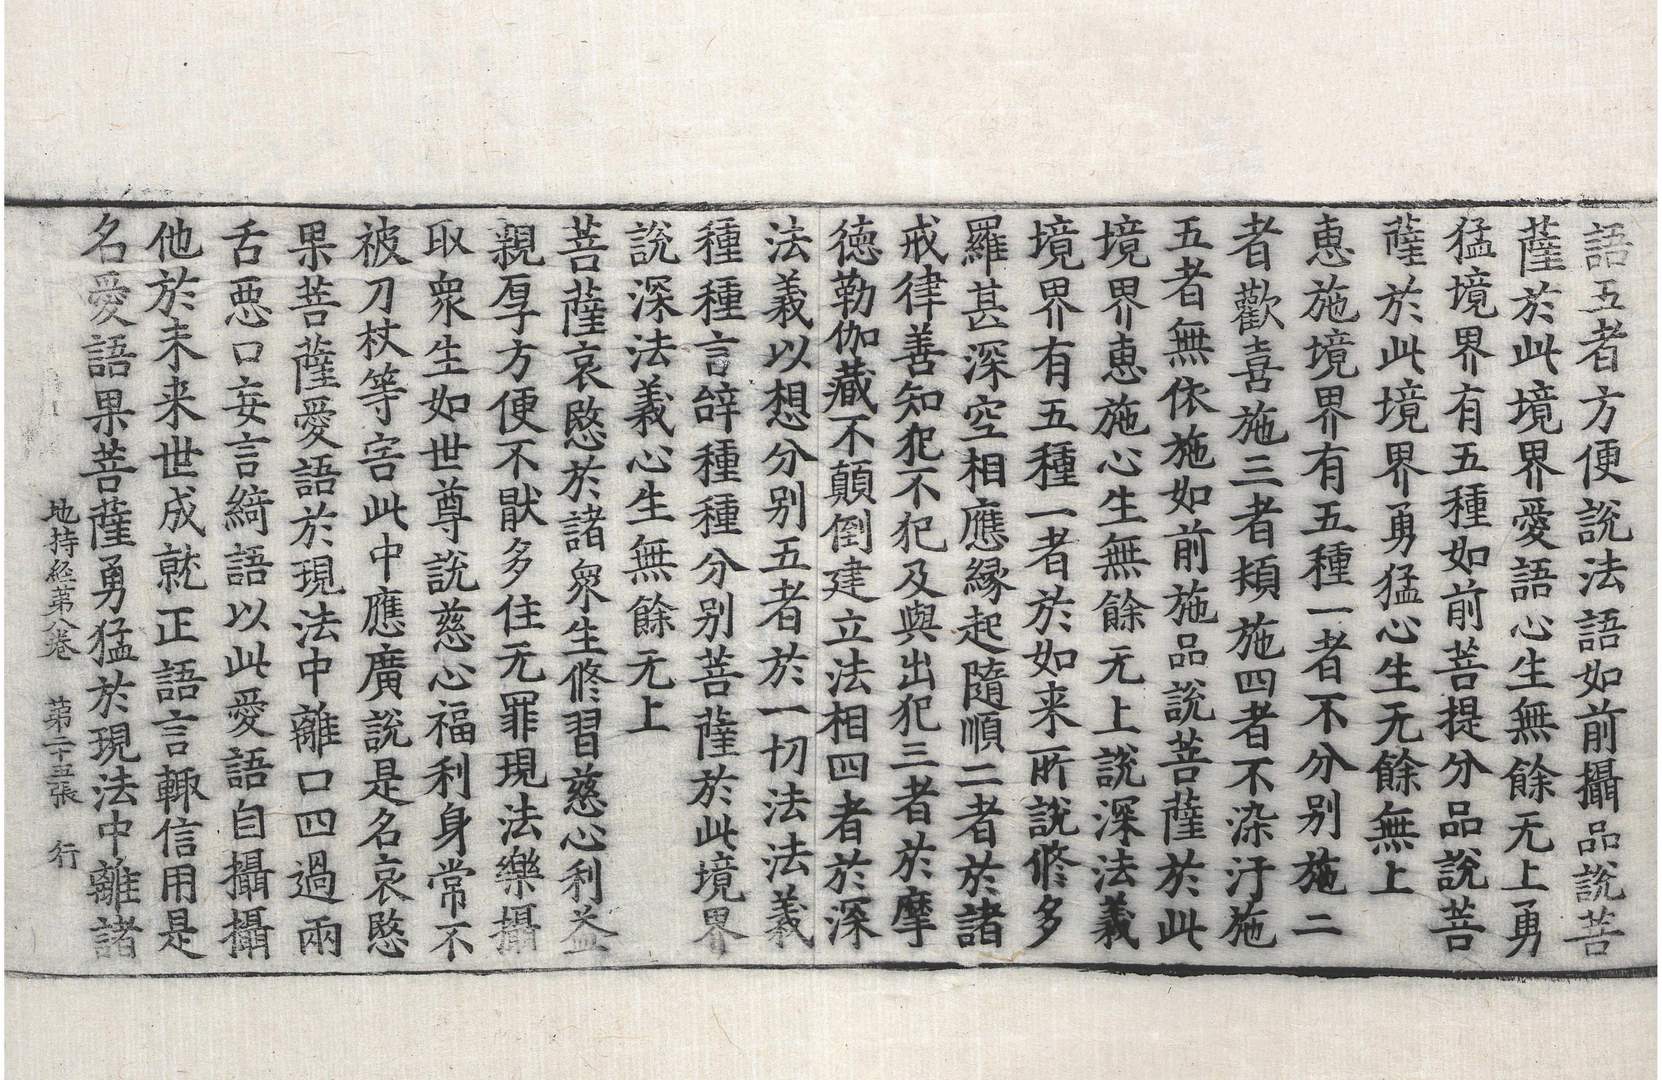 語五者方便說法語如前攝品說菩
薩於此境界愛語心生無餘无上勇
猛境界有五種如前菩提分品說菩
薩於此境界勇猛心生无餘無上
惠施境界有五種一者不分别施二
者歡喜施三者頻施四者不染汙施
五者無依施如前施品說菩薩於此
境界惠施心生無餘无上說深法義
境界有五種一者於如来所說修多
羅甚深空相應縁起隨順二者於諸
戒律善知犯不犯及與出犯三者於摩
德勒伽藏不顛倒建立法相四者於深
法義以想分别五者於一切法法義
種種言辞種種分别菩薩於此境界
說深法義心生無餘无上
菩薩哀愍於諸衆生修習慈心利益
親厚方便不猒多住无罪現法樂攝
取衆生如世尊說慈心福利身常不
被刀杖等害此中應廣說是名哀愍
果菩薩愛語於現法中離口四過兩
舌惡口妄言綺語以此愛語自攝攝
他於未来世成就正語言輙信用是
名愛語果菩薩勇猛於現法中離諸
地持経第八卷　第二十五張　行